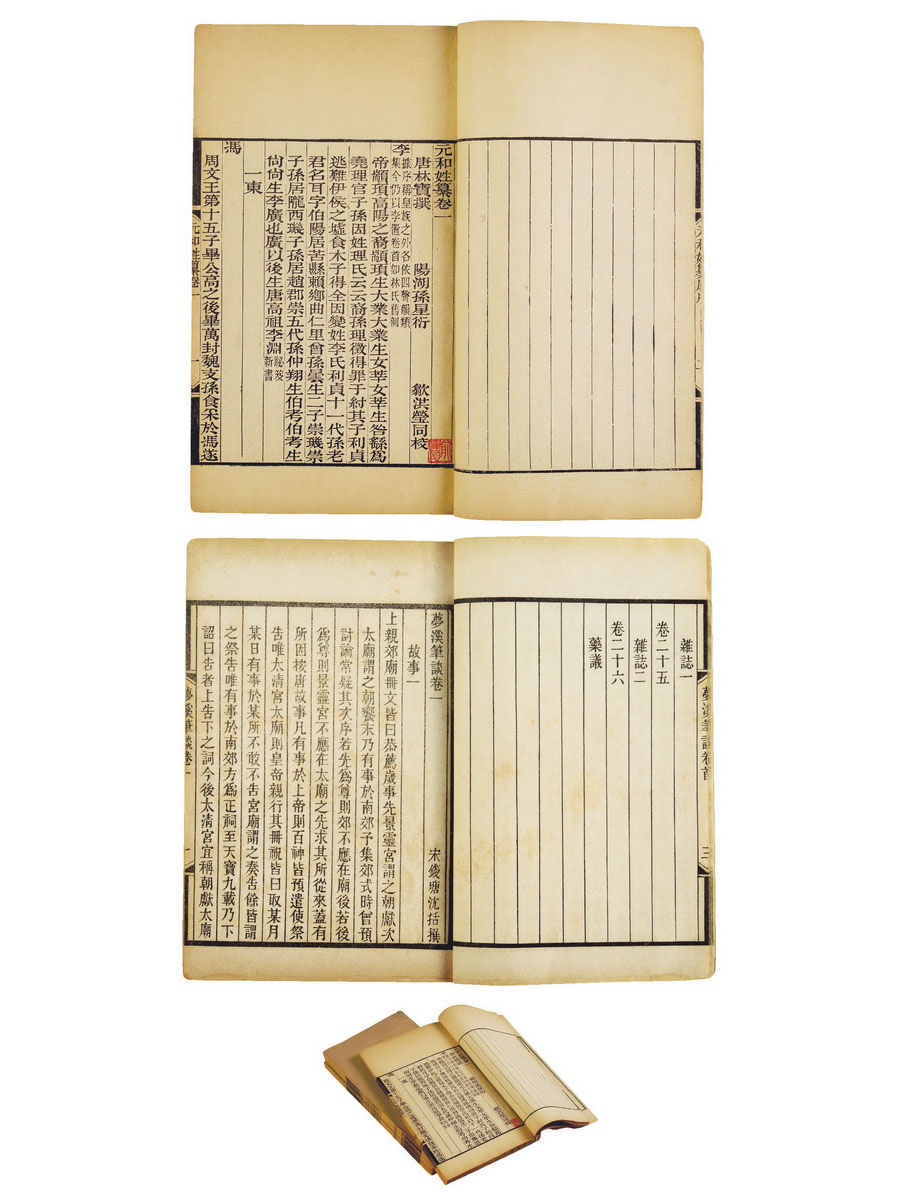 元和姓纂卷一
唐林寶撰 陽湖孫星衍 歙洪瑩同校
李 據序稱皇族之外各依四聲韻類集今仍以李置卷首如林氏舊例
帝顓頊高陽之裔顓頊生大業大業生女莘女莘生咎繇爲
堯理官子孫因姓理氏云云裔孫理徵得罪于紂其子利貞
逃難伊侯之墟食木子得全因變姓李氏利貞十一代孫老
君名耳字伯陽居苦縣賴鄉曲仁里曾孫曇生二子崇璣崇
子孫居隴西璣子孫居趙郡崇五代孫仲翔生伯考伯考生
尙尙生李廣也廣以後生唐高祖李淵 祕笈新書
一東
馮
周文王第十五子畢公高之後畢萬封魏支孫食采於馮遂
元和姓纂卷一 一
雜誌一
卷二十五
雜誌二
卷二十六
藥議
夢溪筆談卷首 三
夢溪筆談卷一
宋錢塘沈括撰
故事一
上親郊廟冊文皆曰恭薦歲事先景靈宮謂之朝獻次
太廟謂之朝饗末乃有事於南郊予集郊式時曾預
討論常疑其次序若先爲尊則郊不應在廟後若後
爲尊則景靈宮不應在太廟之先求其所從來蓋有
所因按唐故事凡有事於上帝則百神皆預遣使祭
告唯太清宮太廟則皇帝親行其冊祝皆曰取某月
某日有事於某所不敢不告宮廟謂之奏告餘皆謂
之祭告唯有事於南郊方爲正祠至天寶九載乃下
詔曰告者上告下之詞今後太清宮宜稱朝獻太廟
夢溪筆談卷一 一